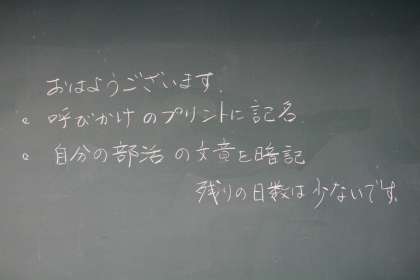 おはようございます.
。呼びかけのプリントに記名.
。自分の部活の文章を暗記
残りの日数は少ないです。